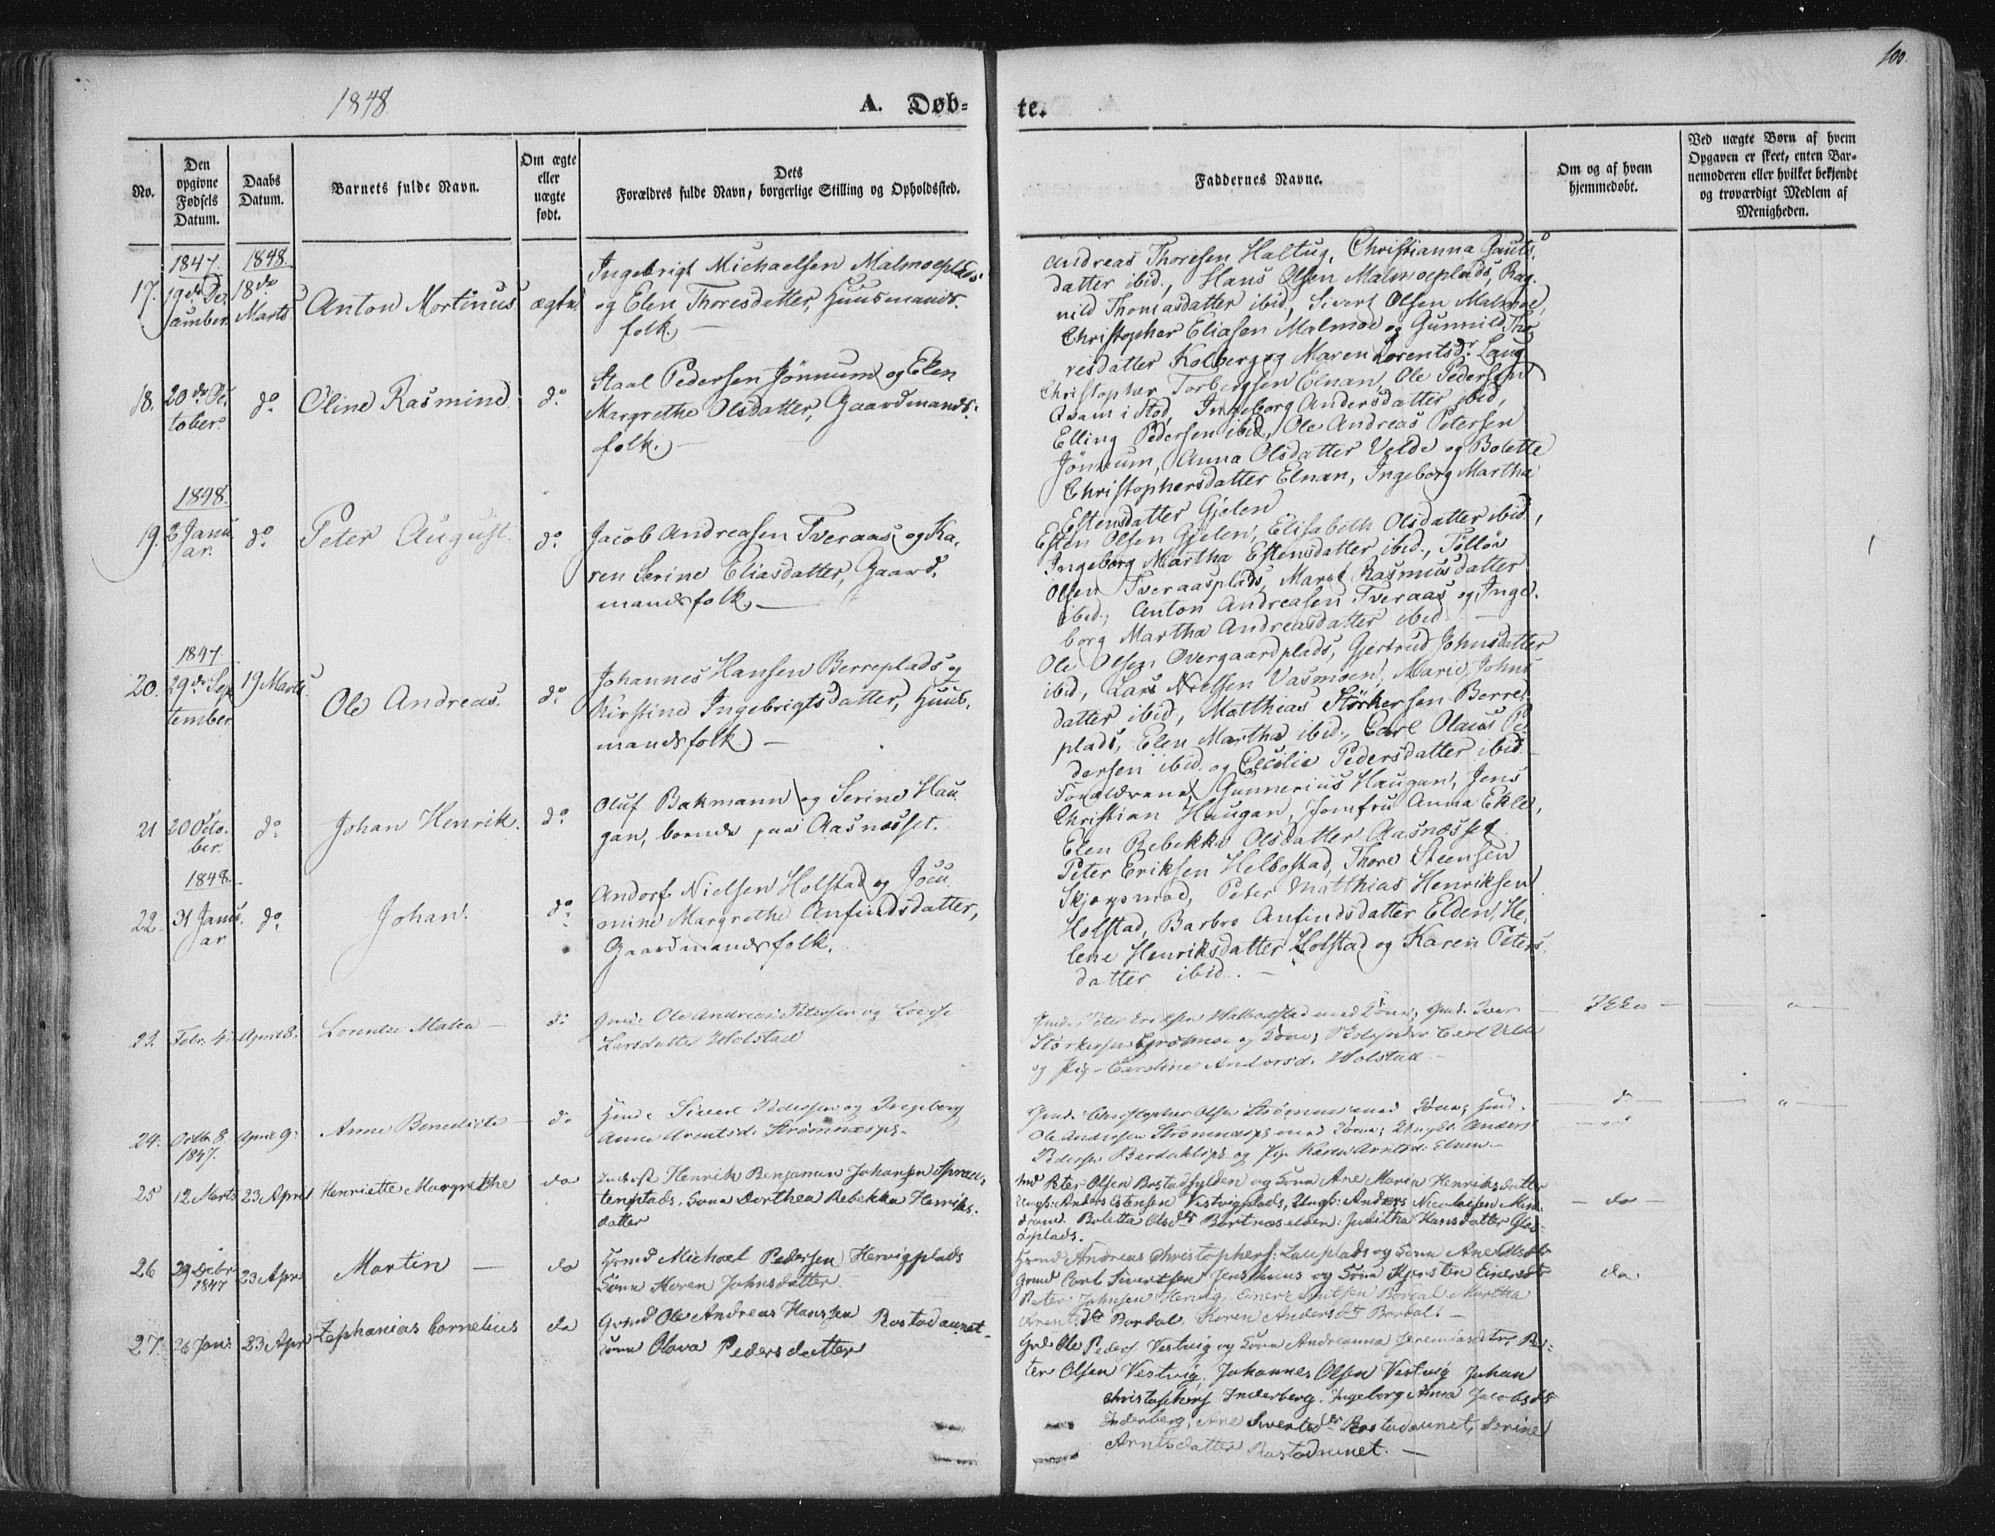 100.
1848
A. Døb-
te.
No.
Den opgivne Fødsels Datum.
Daabs Datum.
Barnets fulde Navn.
Om ægte eller uægte født.
Dets
Forældres fulde Navn, borgerlige Stilling og Opholdssted.
Faddernes Navne.
Om og af hvem hjemmedøbt.
Ved uægte Børn af hvem Opgaven er skeet, enten Barnemoderen eller hvilket bekjendt og troværdigt Medlem af Menigheden.
1847. 1848.
17. 19de De- 18de
cember. Marts Anton Mortinus ægte.
Ingebrigt Michaelsen Malmoeplads
og Elen Thoresdatter, Huusmands-
folk. —
Andreas Thoresen Haltug, Christianna Gauts-
datter ibid., Hans Olsen Malmoeplads, Rag-
nild Thomasdatter ibid, Sivert Olsen Malmoe,
Christopher Eliasen Malmoe og Gunnild Tho-
risdatter Kolberg og Maren Lorentsdr. Laug
18. 20de Oc-
tober. do. Oline Rasmine do.
Staal Pedersen Jønnum og Elen
Margrethe Olsdatter, Gaardmands-
folk. —
Christopher Torbergsen Elnan, Ole Pedersen
Qvam i Stod, Ingeborg Andersdatter ibid,
Elling Pedersen ibid, Ole Andreas Petersen
Jønnum, Anna Olsdatter Velde og Bolette
Christophersdatter Elnan, Ingeborg Martha
Estensdatter Gjelen
1848.
19. 2 Janu-
ar. do. Peter August. do.
Jacob Andreasen Tveraas og Ka-
ren Serine Eliasdatter, Gaard-
mandsfolk. —
Esten Olsen Gjelen, Elisabeth Olsdatter ibid.,
Ingeborg Martha Estensdatter ibid., Tølløv
Olsen Tveraasplads, Maret Rasmusdatter
ibid., Anton Andreasen Tveraas og Inge-
borg Martha Andreasdatter ibid
1847.
20. 29de Sep- 19 Marts.
tember Ole Andreas. do.
Johannes Hansen Berreplads og
Kirstine Ingebrigtsdatter, Huus-
mandsfolk —
Ole Olsen Overgaardplads, Gjertrud Johnsdatter
ibid, Lars Nielsen Vasmoen, Marie Johns-
datter ibid, Matthias Størkersen Berre-
plads, Elen Martha ibid., Carl Olaus Pe-
dersen ibid. og Cecilie Pedersdatter ibid.
21 20 Octo-
ber. do. Johan Henrik. do.
Oluf Bakmann og Serine Hau-
gan, boende paa Aasnæsset.
Forældrene, Gunnerius Haugan, Jens
Christian Haugan, Jomfru Anna Ekle,
Elen Rebekka Olsdatter Aasnæsset
1848.
22. 31 Janu-
ar do. Johan. do.
Andorf Nielsen Holstad og Jocu-
mine Margrethe Anfindsdatter,
Gaardmandsfolk.
Peter Eriksen Helbostad, Thore Steensen
Skjærsmod, Peter Matthias Henriksen
Holstad, Barbro Anfindsdatter Elden, He-
lene Henriksdatter Holstad og Karen Peters-
datter ibid. —
23. Febr. 4. April 8. Lorentze Malea — do
Gmd. Ole Andreas Petersen og Lovise
Larsdatter Holstad
Gmd. Peter Eriksen Halbostad med Kone; Gmd. Iver
Størkersen og Kone; Carl Velde
og Pig. Caroline Andorsd. Holstad —
Ikke — — „ —
24. Octb. 8. April 9. Anne Benedicte — do
1847.
Hmd. Sivert Pedersen og Ingeborg
Anna Arentsd. Strømnæspl.
Gmd. Christopher Olsen Strømnæs med Kone; Hmd.
Ole Andersen Strømnæspl med Kone; Ungk. Anders
Pedersen og Pige Karen Arntsd. Elnen —
do — — „ —
25 12 Marts 23 April Henriette Margrethe do
Inderst Henrik Benjamin Johansen
templads. Kone Dorthea Rebekka Henriks-
datter
Hmd Peter Olsen Bostadfylden og Kone Ane Maria Henriksdatter
Ungk: Anders Estensen Vestvigplads, Ungk: Anders Nicolaisen
Boletta Olsdtr. Judithe Hansdatter
plads.
— do —
26 29 Decbr 1847 23 Apr Martin — do
Hmd Michael Pedersen Hervigplads
Kone Karen Johnsdatter
Hmd Andreas Christophers: Lauplads og Kone Ane
Gmd Carl Sivertsen Jenshuus og Kone Kjersten Einersdtr
Peter Johnsen Hervig, Bordal, Martha
Arentsdtr Bordal, Karen Andersdtr Bordal. —
do
27. 26 Jan: 23 Apr Zephanias Cornelius do
Grmd Ole Andreas Hanssen Rostadaunet
Kone Olava Pedersdatter
Gmd Ole Peders Vestvig og Kone Andreanna Pe-
ter Olsen Vestvig, Johannes Olsen Vestvig Johan
Christophers Inderberg. Ingeborg Anna Jacobsdtr
Inderberg, Ane Sivertsdtr Rostadaunet, Serine
Arntsdatter Rostadaunet. —